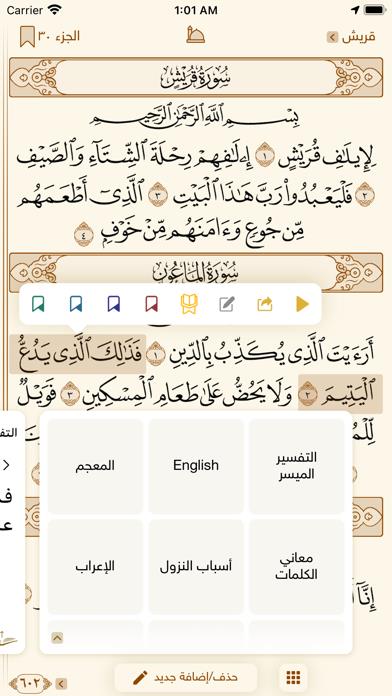 Carrier 1:01 AM
قريش الجزء ٣٠
سُورَةُ قُرَيْشٍ
بِسْمِ ٱللَّهِ ٱلرَّحْمَٰنِ ٱلرَّحِيمِ
لِإِيلَٰفِ قُرَيْشٍ ١ إِۦلَٰفِهِمْ رِحْلَةَ ٱلشِّتَآءِ وَٱلصَّيْفِ
٢ فَلْيَعْبُدُوا۟ رَبَّ هَٰذَا ٱلْبَيْتِ ٣ ٱلَّذِىٓ أَطْعَمَهُم
مِّن جُوعٍ وَءَامَنَهُم مِّنْ خَوْفٍۭ ٤
سُورَةُ المَاعُونِ
أَرَءَيْتَ ٱلَّذِى يُكَذِّبُ بِٱلدِّينِ ١ فَذَٰلِكَ ٱلَّذِى يَدُعُّ
ٱلْيَتِيمَ ٢ وَلَا يَحُضُّ عَلَىٰ طَعَامِ ٱلْمِسْكِينِ ٣ فَوَيْلٌ
التفسير الميسر
English
المعجم
معاني الكلمات
أسباب النزول
الإعراب
حذف/إضافة جديد
٦٠٢